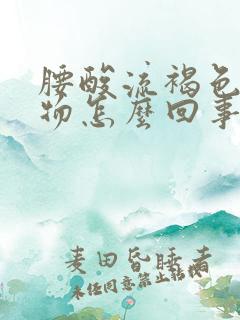 腰酸流褐色
物怎麼回事
麦田昏睡者
未经同意禁止转载